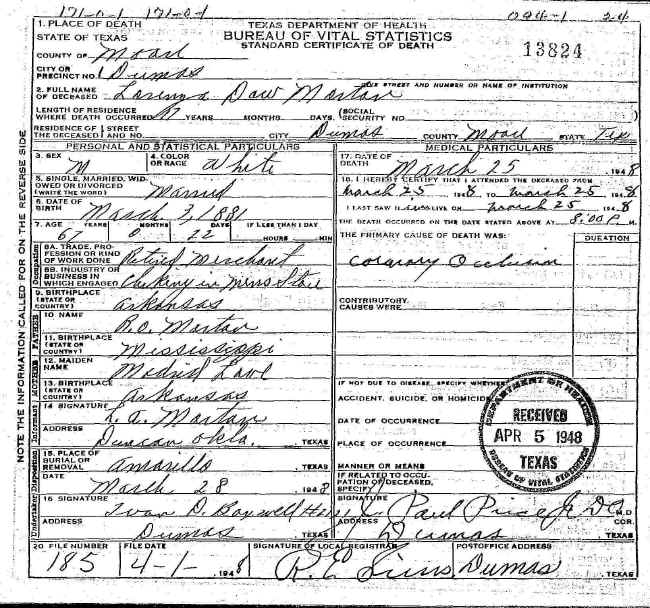 171-0-1 171-0-1
1. PLACE OF DEATH TEXAS DEPARTMENT OF HEALTH
STATE OF TEXAS BUREAU OF VITAL STATISTICS
STANDARD CERTIFICATE OF DEATH 13824
COUNTY OF
CITY OR
PRECINCT NO. Dumas
GIVE STREET AND NUMBER OR NAME OF INSTITUTION
2. FULL NAME
OF DECEASED Lorenzo Dow
LENGTH OF RESIDENCE
WHERE DEATH OCCURRED YEARS MONTHS DAYS (SOCIAL SECURITY NO. )
RESIDENCE OF STREET
THE DECEASED AND NO. CITY Dumas COUNTY STATE Tex
PERSONAL AND STATISTICAL PARTICULARS MEDICAL PARTICULARS
3. SEX M 4. COLOR OR RACE White
5. SINGLE, MARRIED, WIDOWED OR DIVORCED (WRITE THE WORD) Married
6. DATE OF BIRTH March 3, 1881
7. AGE YEARS MONTHS DAYS IF LESS THAN 1 DAY
67 0 22 HOURS MIN
Occupation
8A. TRADE, PROFESSION OR KIND OF WORK DONE Retired Merchant
8B. INDUSTRY OR BUSINESS IN WHICH ENGAGED in Mens Store
9. BIRTHPLACE (STATE OR COUNTRY) Arkansas
FATHER
10. NAME R.O.
11. BIRTHPLACE (STATE OR COUNTRY) Mississippi
MOTHER
12. MAIDEN NAME
13. BIRTHPLACE (STATE OR COUNTRY) Arkansas
Informant
14 SIGNATURE L. A.
ADDRESS Duncan Okla. TEXAS
Disposition
15. PLACE OF BURIAL OR REMOVAL Amarillo TEXAS
DATE March 28 1948
Undertaker
16 SIGNATURE Ivan D. Boxwell
ADDRESS Dumas TEXAS
17. DATE OF DEATH March 25 1948
18. I HEREBY CERTIFY THAT I ATTENDED THE DECEASED FROM
March 25 1948 TO March 25 1948
I LAST SAW H ALIVE ON March 25 1948
THE DEATH OCCURRED ON THE DATE STATED ABOVE AT 8:00 P. M.
THE PRIMARY CAUSE OF DEATH WAS: DURATION
Coronary Occlusion
CONTRIBUTORY CAUSES WERE
IF NOT DUE TO DISEASE, SPECIFY WHETHER
ACCIDENT, SUICIDE, OR HOMICIDE
DATE OF OCCURRENCE
PLACE OF OCCURRENCE
MANNER OR MEANS
IF RELATED TO OCCUPATION OF DECEASED, SPECIFY
SIGNATURE Paul Price Jr DO M.D COR.
ADDRESS Dumas TEXAS
DEPARTMENT OF HEALTH
RECEIVED
APR 5 1948
TEXAS
BUREAU OF VITAL STATISTICS
20. FILE NUMBER FILE DATE SIGNATURE OF LOCAL REGISTRAR POSTOFFICE ADDRESS
185 4-1- 1948 R. E. Sims Dumas TEXAS
NOTE THE INFORMATION CALLED FOR ON THE REVERSE SIDE